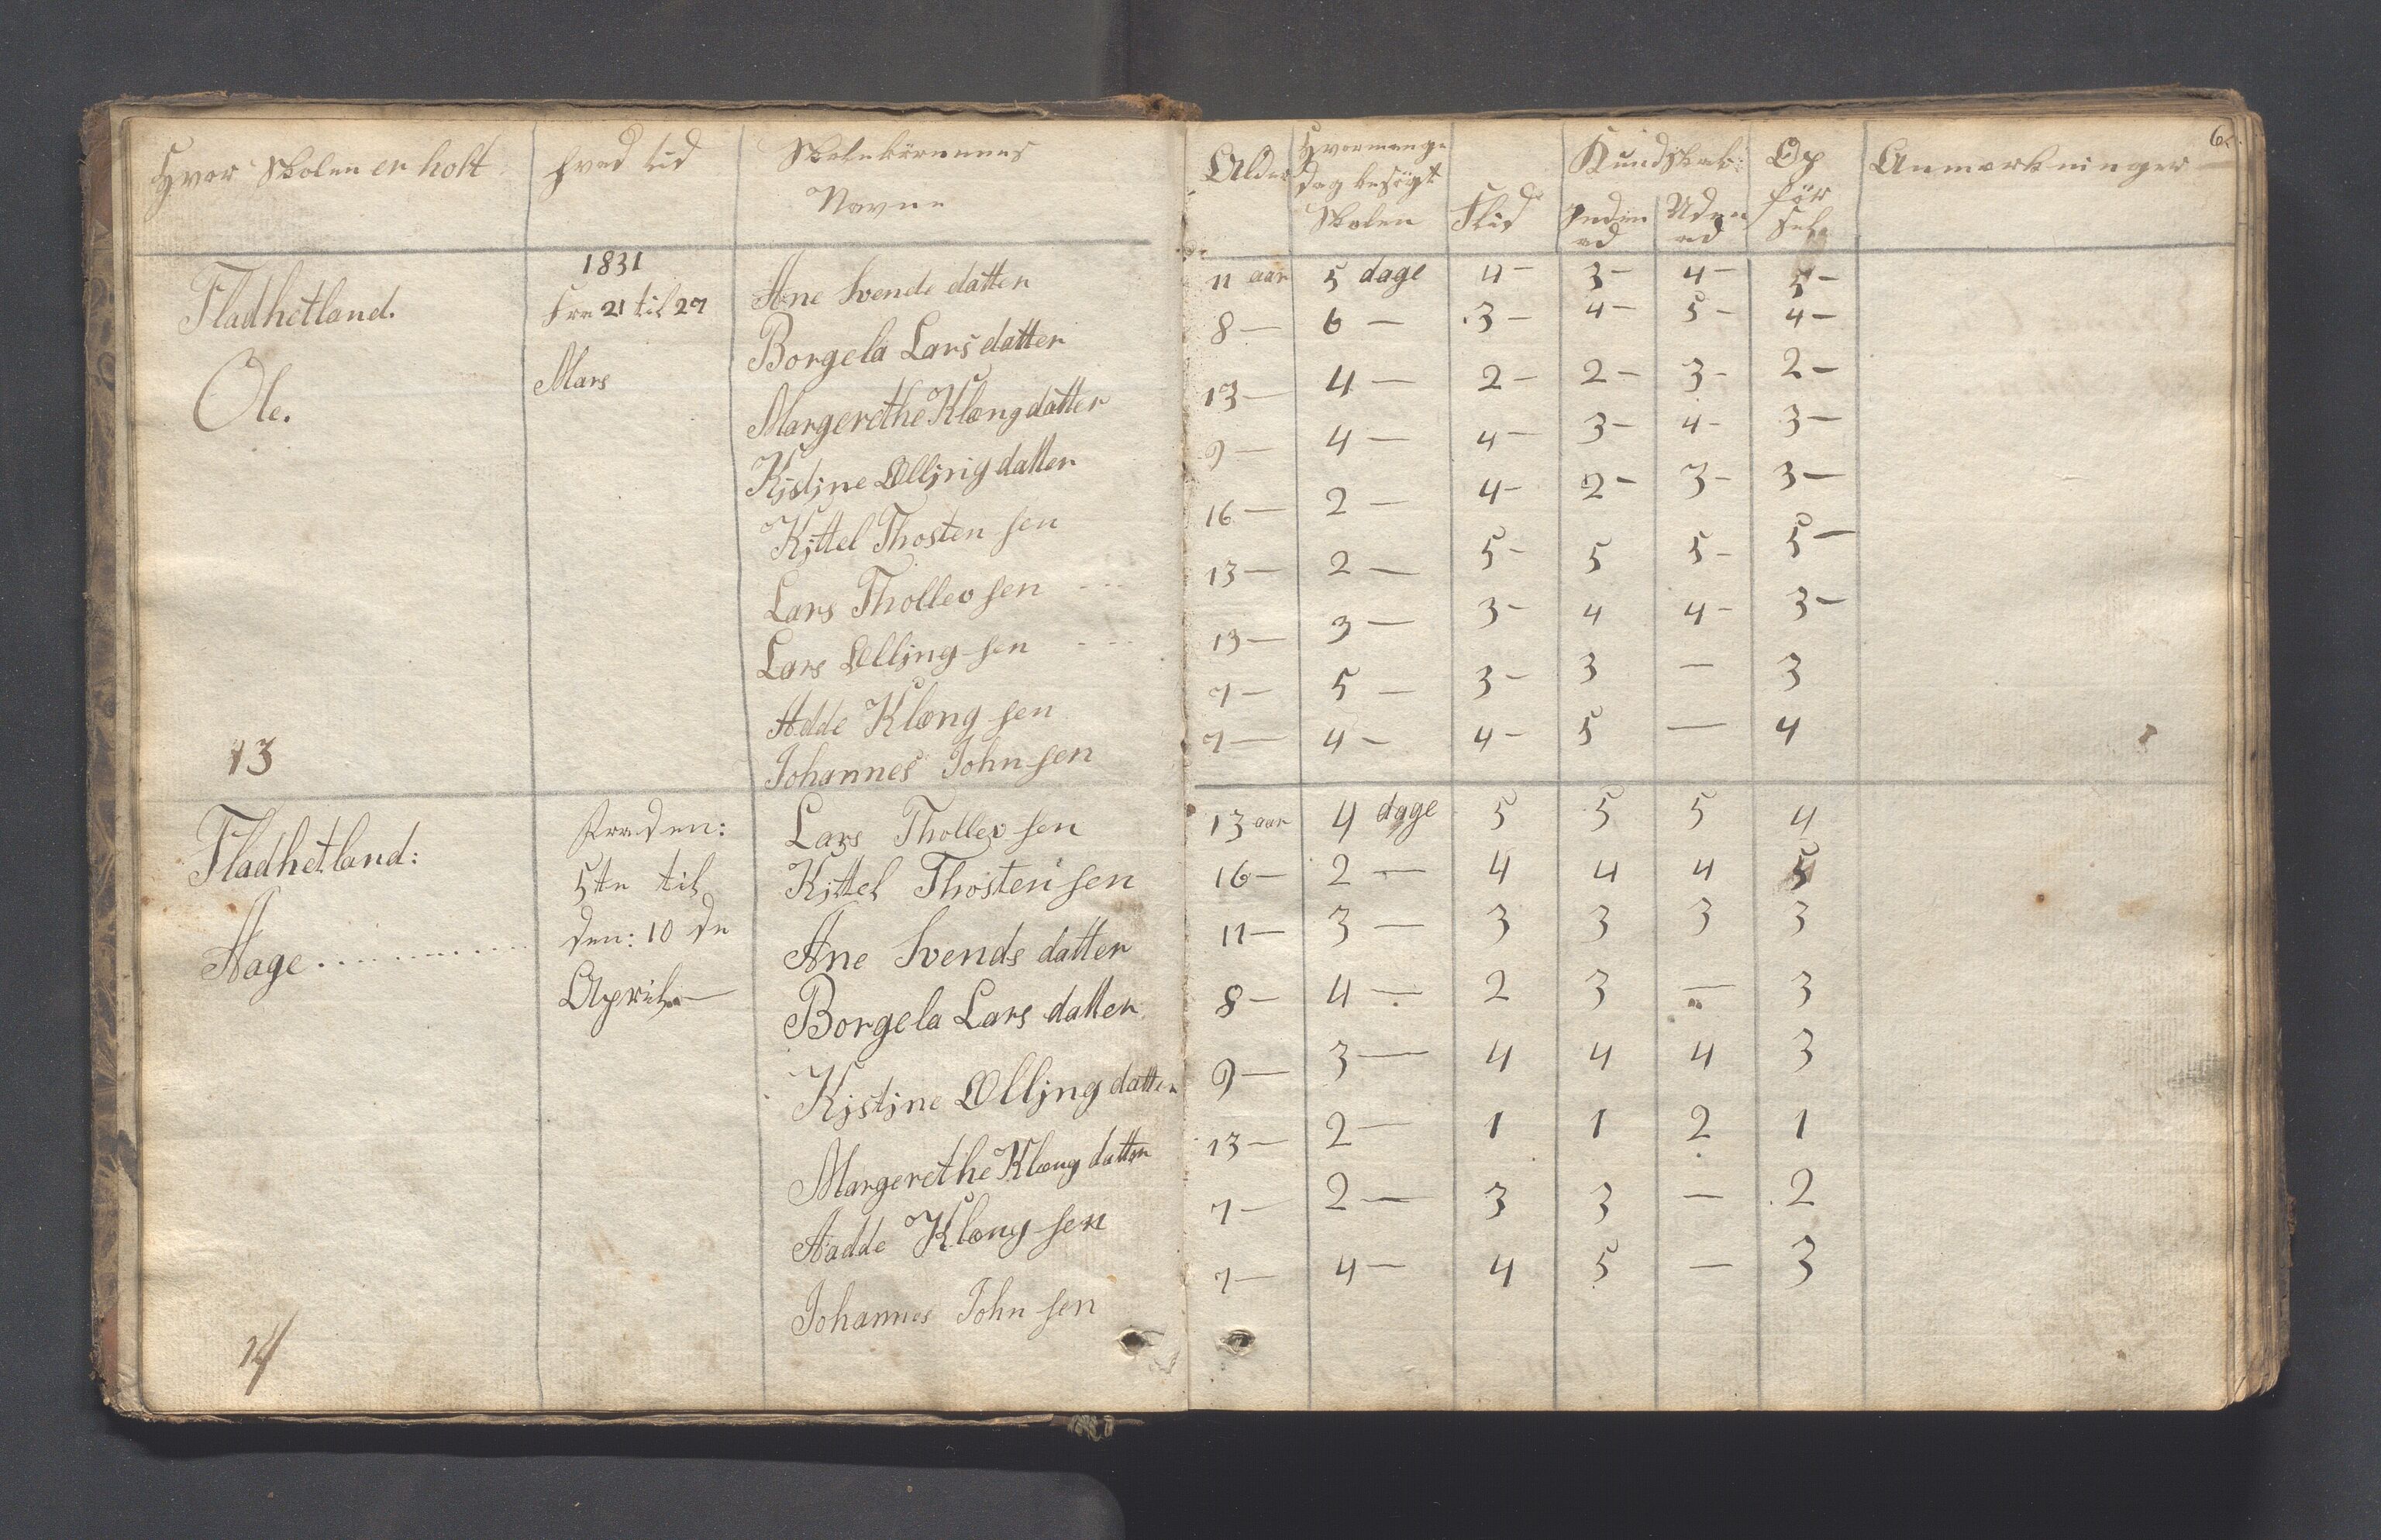 Hvor Skolen er holt
hvad tid
Skolebörnenes
Navne
Alder
Hvormange
Dag besögt
Skolen
Flid
Kundskab:
Inden
ad
Uden
ad
Op
för
sel
Anmerkninger
Fladhetland.
Ole.
13
1831
Fra 21 til 27
Mars
Ane Svends datter 11 aar 5 dage 4- 3- 4- 5-
Borgela Lars datter 8- 6- 3- 4- 5- 4-
Margerethe Klængdatter 13- 4- 2- 2- 3- 2-
Kistine Ølljrig datter 9- 4- 4- 3- 4- 3-
Kittel Thosten sen 16- 2- 4- 2- 3- 3-
Lars Thollev sen --- 13- 2- 5- 5 5- 5-
Lars Ølljng sen --- 13- 3- 3- 4 4- 3-
Adde Klæng sen 7- 5- 3- 3 - 3
Johannes John sen 7- 4- 4- 5 - 4
Fladhetland:
Aage..........
14
Fra den:
5te til
den: 10 de
April
Lars Thollev sen 13 aar 4 dage 5 5 5 4
Kittel Thosten sen 16- 2- 4 4 4 5
Ane Svends datter 11- 3- 3 3 3 3
Borgela Lars datter 8- 4- 2 3 - 3
Kjstjne Ølljng datter 9- 3- 4 4 4 3
Margerethe Klæng datter 13- 2- 1 1 2 1
Aadde Klæng sen 7- 2- 3 3 - 2
Johannes John sen 7- 4- 4 5 - 3